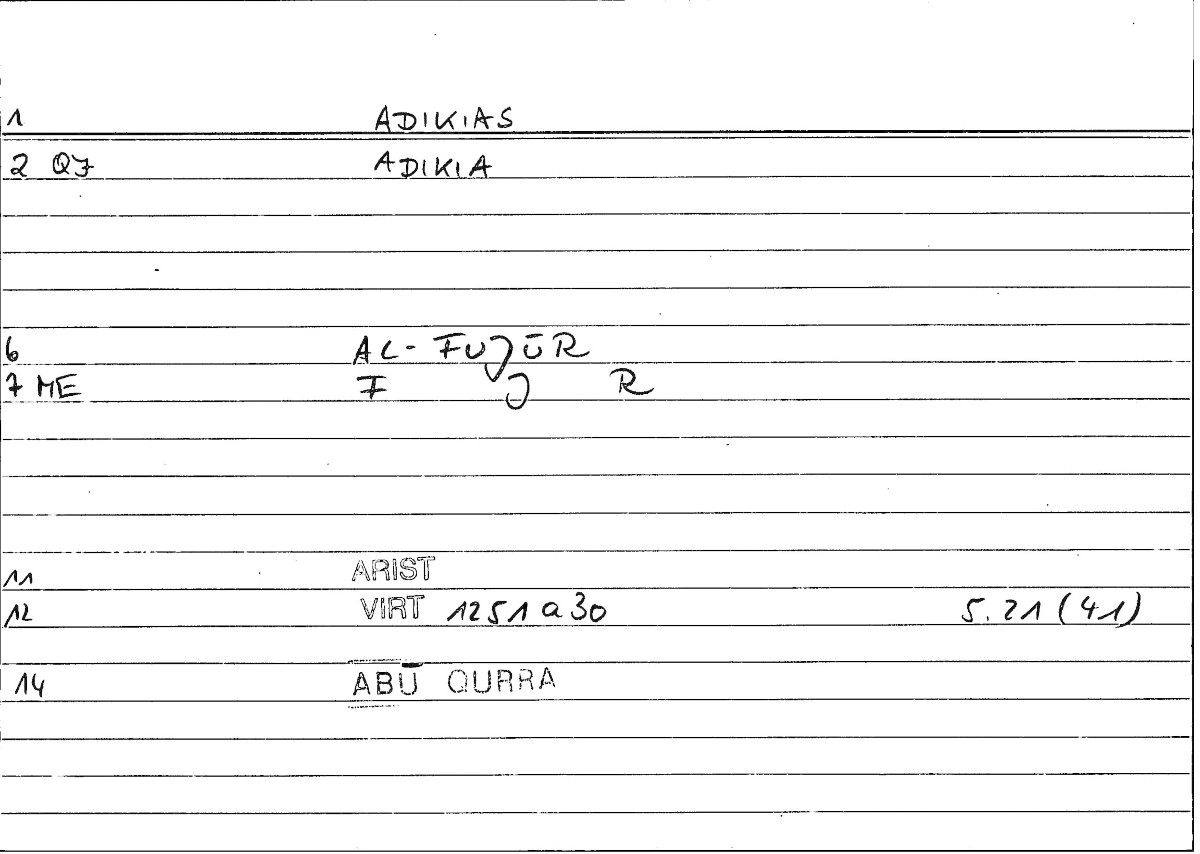 1 ADIKIAS
2 QJ ADIKIA
6 AL-FUJŪR
7 ME F J R
11 ARIST
12 VIRT 1251a30 5.21 (41)
14 ABŪ QURRA